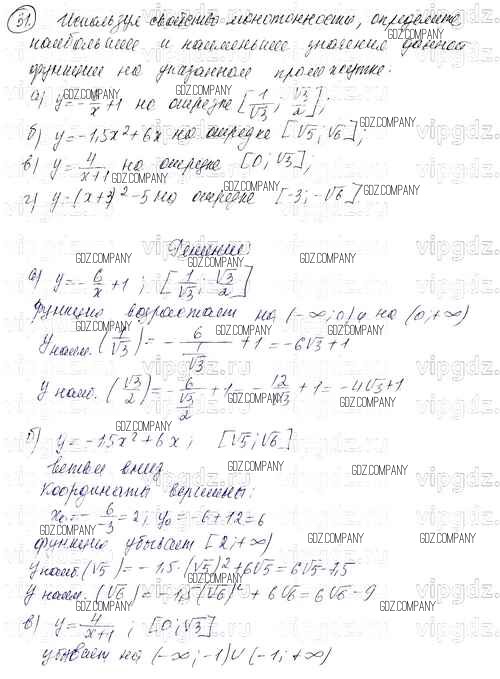 31. Используя свойство монотонности, определите
наибольшее и наименьшее значения данной
функции на указанном промежутке:
а) y = -6/x + 1 на отрезке [1/√3; √3/2];
б) y = -1,5x² + 6x на отрезке [√5; √6];
в) y = 4/(x+1) на отрезке [0; √3];
г) y = (x+3)² - 5 на отрезке [-3; -√6]
Решение:
а) y = -6/x + 1 ; [1/√3; √3/2]
Функция возрастает на (-∞; 0) и на (0; +∞)
y наим. (1/√3) = - 6/(1/√3) + 1 = -6√3 + 1
y наиб. (√3/2) = - 6/(√3/2) + 1 = - 12/√3 + 1 = -4√3 + 1
б) y = -1,5x² + 6x ; [√5; √6]
ветви вниз
Координаты вершины:
x₀ = - 6/-3 = 2; y₀ = -6 + 12 = 6
функция убывает [2; +∞)
y наиб. (√5) = -1,5·(√5)² + 6√5 = 6√5 - 7,5
y наим. (√6) = -1,5(√6)² + 6√6 = 6√6 - 9
в) y = 4/(x+1) ; [0; √3]
убывает на (-∞; -1) ∪ (-1; +∞)
GDZ.COMPANY
vipgdz.ru